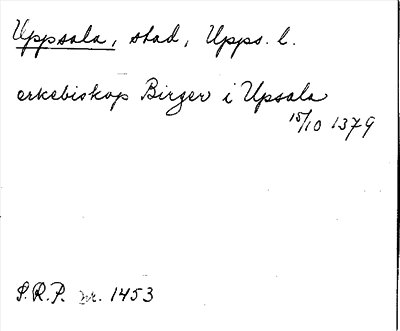 Uppsala, stad, Upps. l.
erkebiskop Birger i Upsala
15/10 1379
S.R.P. nr. 1453